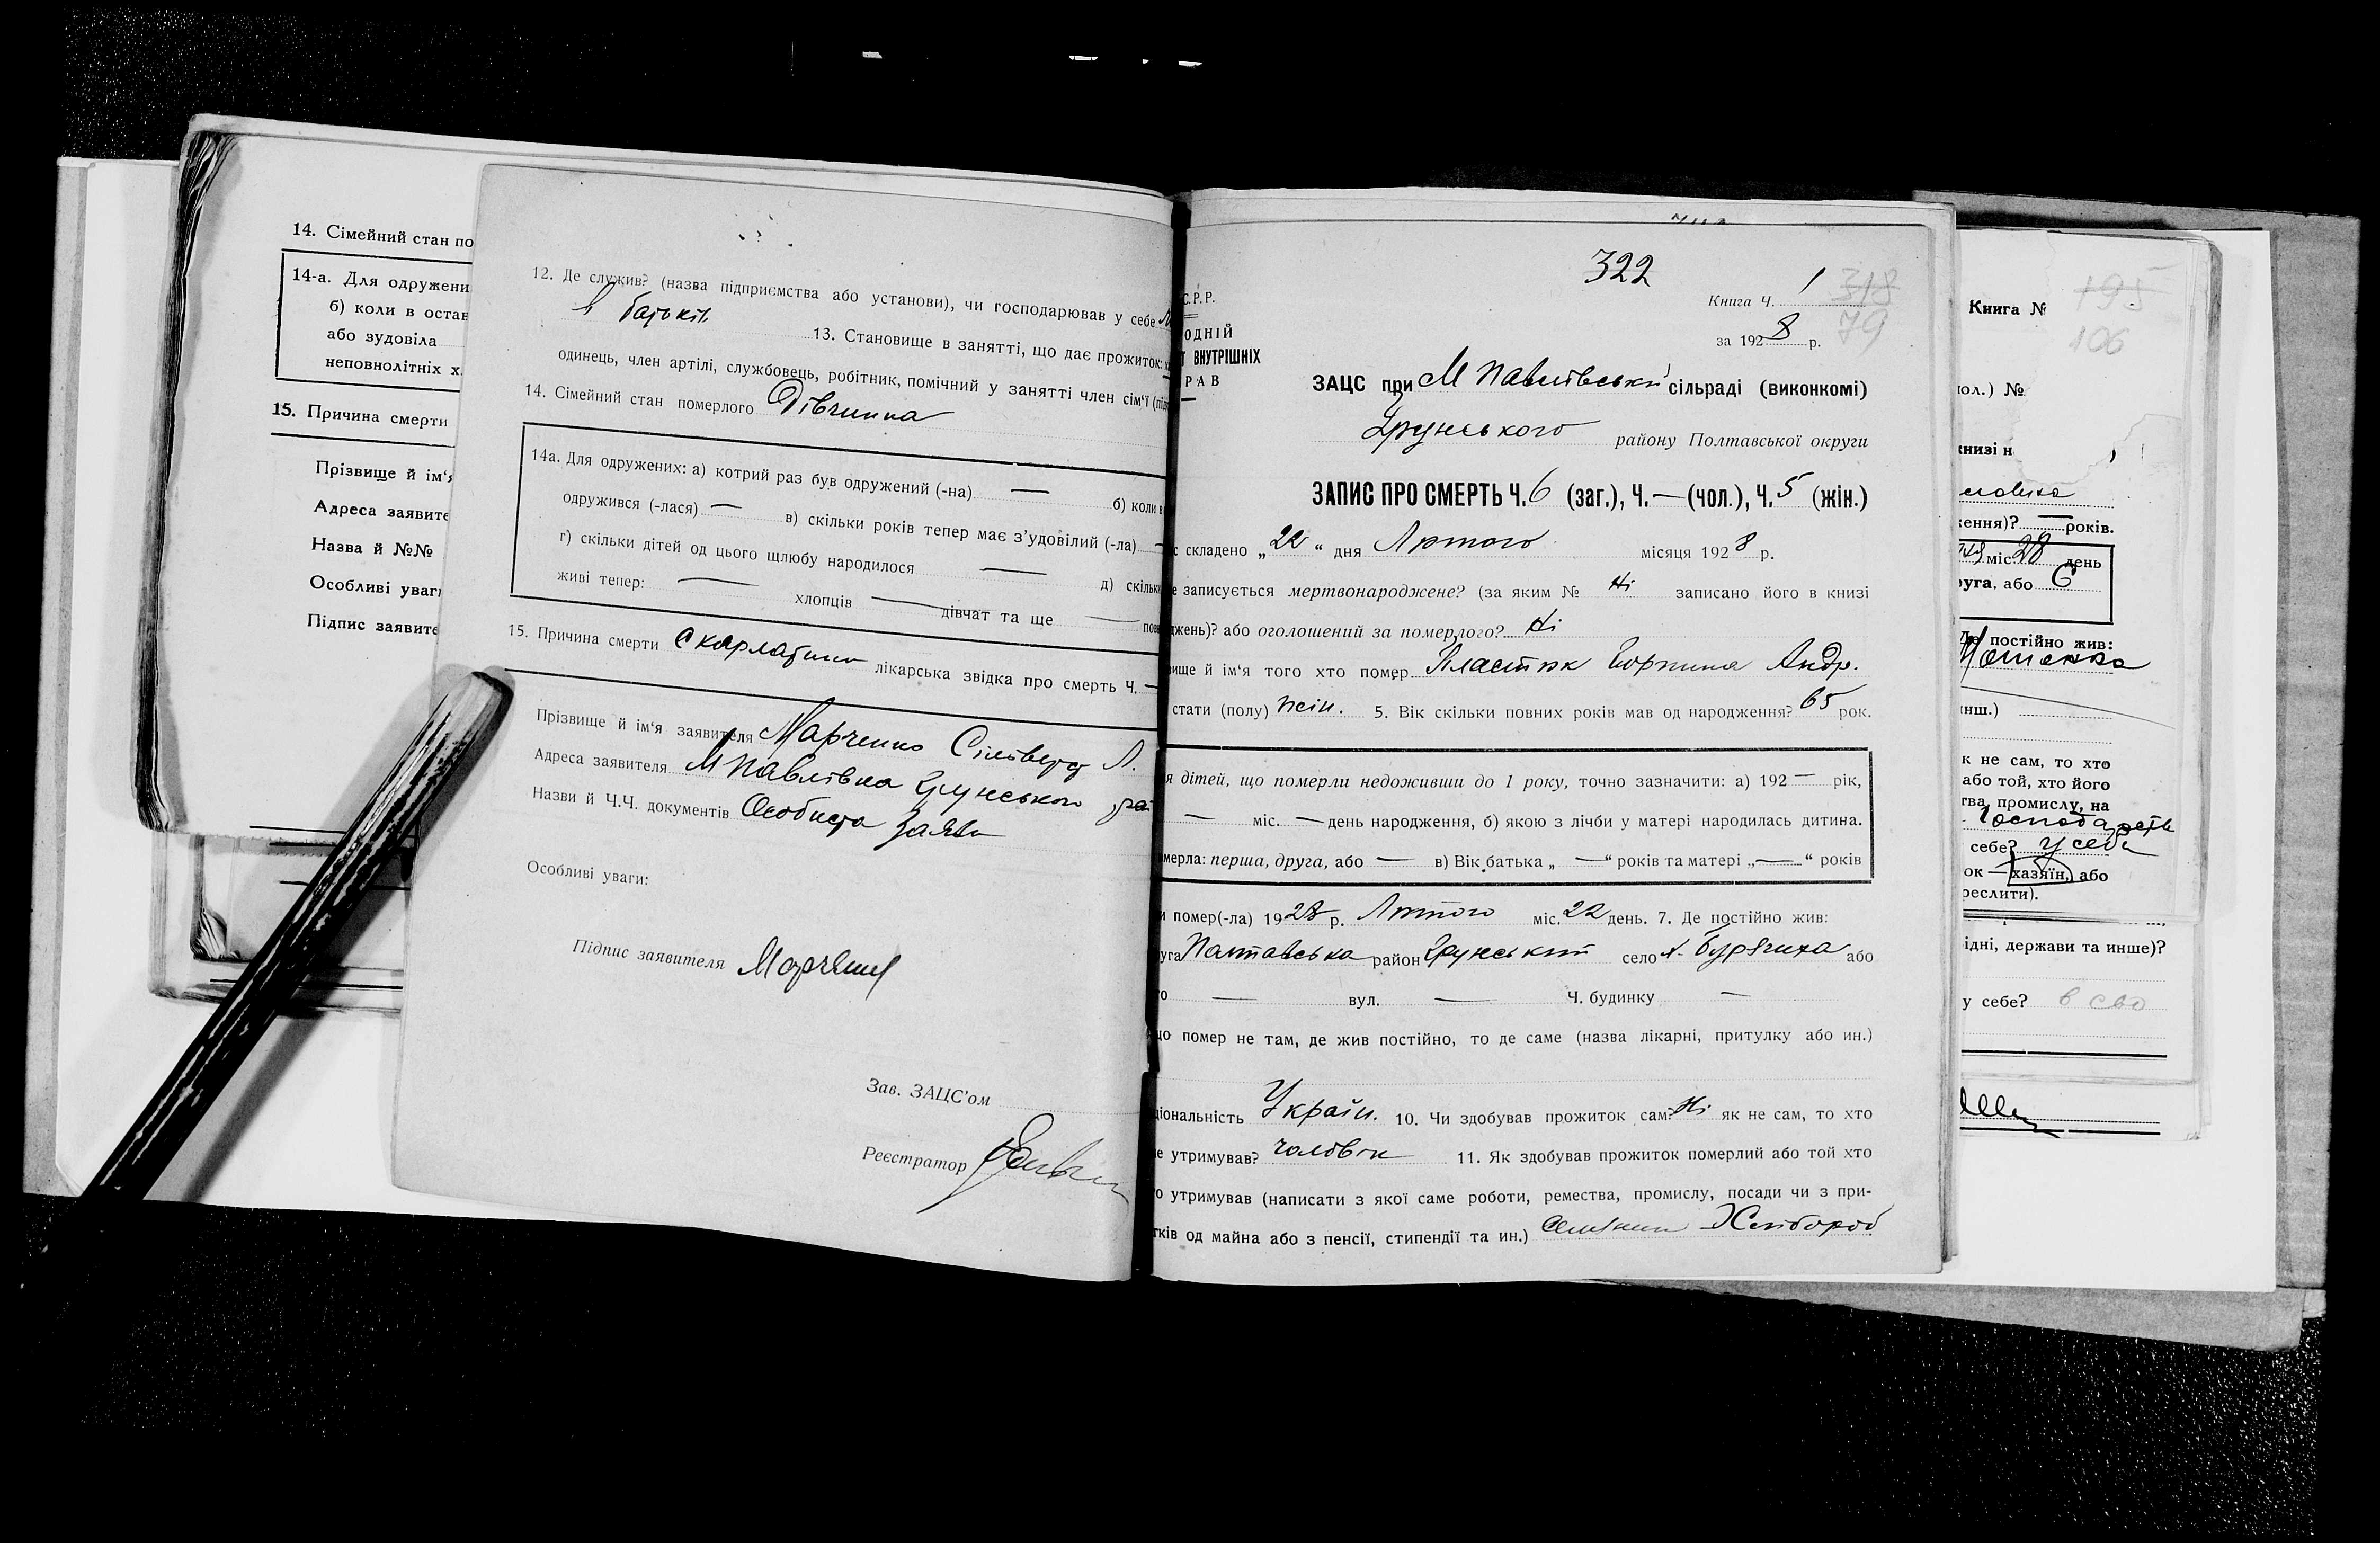 14. Сімейний стан по
14-а. Для одружени
б) коли в остан
або зудовіла
неповнолітніх х
15. Причина смерти
Прізвище й ім'я
Адреса заявите
Назва й №№
Особливі уваг
Підпис заявите
12. Де служив? (назва підприємства або установи), чи господарював у себе
в батьків 13. Становище в занятті, що дає прожиток:
одинець, член артілі, службовець, робітник, помічний у занятті член сім'ї (під
14. Сімейний стан померлого Дівчинка
14а. Для одружених: а) котрий раз був одружений (-на) — б) коли в
одружився (-лася) — в) скільки років тепер має з'удовілий (-ла) —
г) скільки дітей од цього шлюбу народилося — д) скільки
живі тепер: — хлопців — дівчат та ще — повн
15. Причина смерти Скарлатина лікарська звідка про смерть Ч. —
Прізвище й ім'я заявителя Марченко Сільверст Л.
Адреса заявителя М Павлівка Грунського рай
Назви й Ч.Ч. документів Особиста заява
Особливі уваги:
Підпис заявителя Марченк
Зав. ЗАЦС'ом
Реєстратор
322
С.Р.Р.
Книга Ч. 1 318
ОДНІЙ
79
Т ВНУТРІШНІХ
за 1928 р.
РАВ
ЗАЦС при М Павлівській сільраді (виконкомі)
Грунського району Полтавської округи
ЗАПИС ПРО СМЕРТЬ Ч. 6 (заг.), Ч. — (чол.), Ч. 5 (жін.)
с складено „22“ дня Лютого місяця 1928 р.
е записується мертвонароджене? (за яким № Ні записано його в книзі
джень)? або оголошений за померлого? Ні
вище й ім'я того хто помер Пластюк Горпина Андр.
стати (полу) жін. 5. Вік скільки повних років мав од народження? 65 рок.
я дітей, що померли недоживши до 1 року, точно зазначити: а) 192 — рік,
— міс. — день народження, б) якою з лічби у матері народилась дитина.
мерла: перша, друга, або — в) Вік батька „ — “ років та матері „ — “ років
и помер(-ла) 1928 р. Лютого міс. 22 день. 7. Де постійно жив:
уга Полтавська район Грунський село х. Бурячиха або
го — вул. — Ч. будинку —
що помер не там, де жив постійно, то де саме (назва лікарні, притулку або ин.)
ціональність Україн. 10. Чи здобував прожиток сам? Ні як не сам, то хто
е утримував? чоловік 11. Як здобував прожиток померлий або той хто
о утримував (написати з якої саме роботи, ремества, промислу, посади чи з при-
тків од майна або з пенсії, стипендії та ин.) Хлібороб
Книга № 195
106
чол.) №
книзі н
ження)? — років.
міс. 28 день
руга, або 6
Де постійно жив:
инш.)
к не сам, то хто
або той, хто його
тва, промислу, на
Господарств
себе? у себе
ок — хазяїн, або
реслити).
ідні, держави та инше)?
у себе? в сво